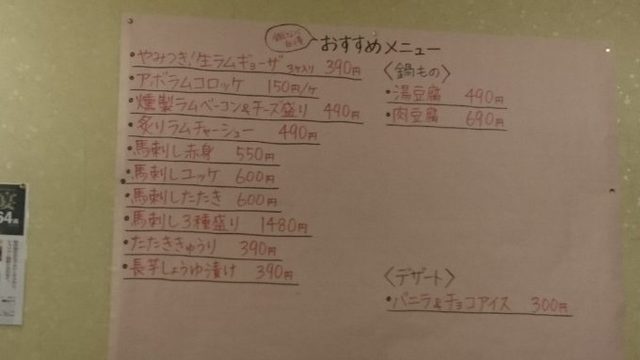 おすすめメニュー
・やみつき!生ラムギョーザ 3ケ入り 390円
・アボラムコロッケ 150円/ケ
・燻製ラムベーコン&チーズ盛り 490円
・炙りラムチャーシュー 490円
・馬刺し赤身 550円
・馬刺しユッケ 600円
・馬刺したたき 600円
・馬刺し3種盛り 1480円
・たたききゅうり 390円
・長芋しょうゆ漬け 390円
〈鍋もの〉
・湯豆腐 490円
・肉豆腐 690円
〈デザート〉
・バニラ&チョコアイス 300円
宴